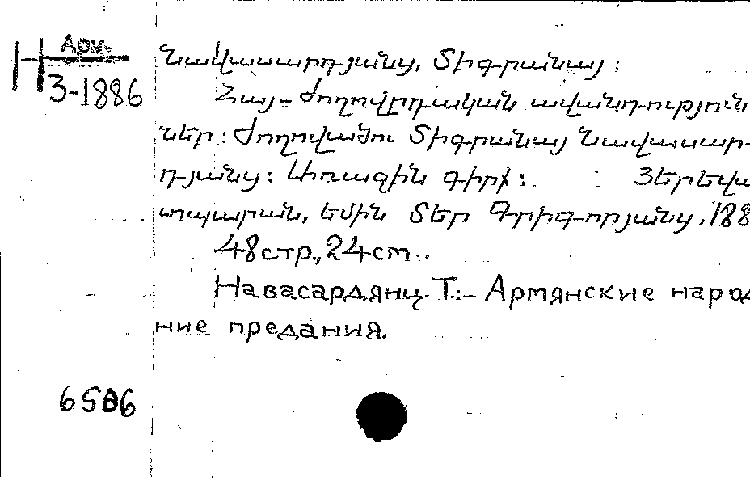 Арм.
3-1886
Նավասարդյանց, Տիգրանայ:
Հայ-ժողովրդական ավանդություն
ներ: Ժողովածու Տիգրանայ Նավասար-
դյանց: Առագին գիրք: Յերեվա
տպարան, Եմին Տեր Գրիգորյանց, 188
48стр., 24cm.
Навасардянц Т.- Армянские народ
ние предания.
6586